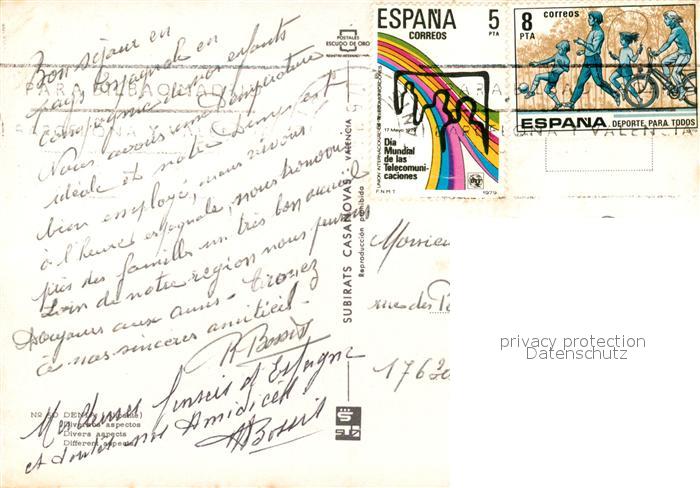 Bon séjour en
pays Espagnole en
compagnie de nos enfants
Nous avons une température
idéale et notre temps est
bien employé, nous vivons
à l'heure espagnole, nous trouvons
près des familles un très bon accueil
Loin de notre région nous pensons
toujours aux amis. Croyez
à nos sincères amitiés.
R Bossis
Meilleurs
d'Espagne
et toutes nos Amitiés
Bossis
Nº 50 DENIA (Alicante)
Diversos aspectos
Divers aspects
Different aspects
POSTALES
ESCUDO DE ORO
SUBIRATS CASANOVAS - VALENCIA
Reproducción prohibida
ESPAÑA 5
CORREOS PTA
UNION INTERNACIONAL DE TELECOMUNICACIONES
17 Mayo 1979
Dia
Mundial
de las
Telecomuni-
caciones
F.N.M.T. 1979
8 correos
PTA
ESPAÑA DEPORTE PARA TODOS
VALENCIA
Monsieur
rue des
privacy protection
Datenschutz